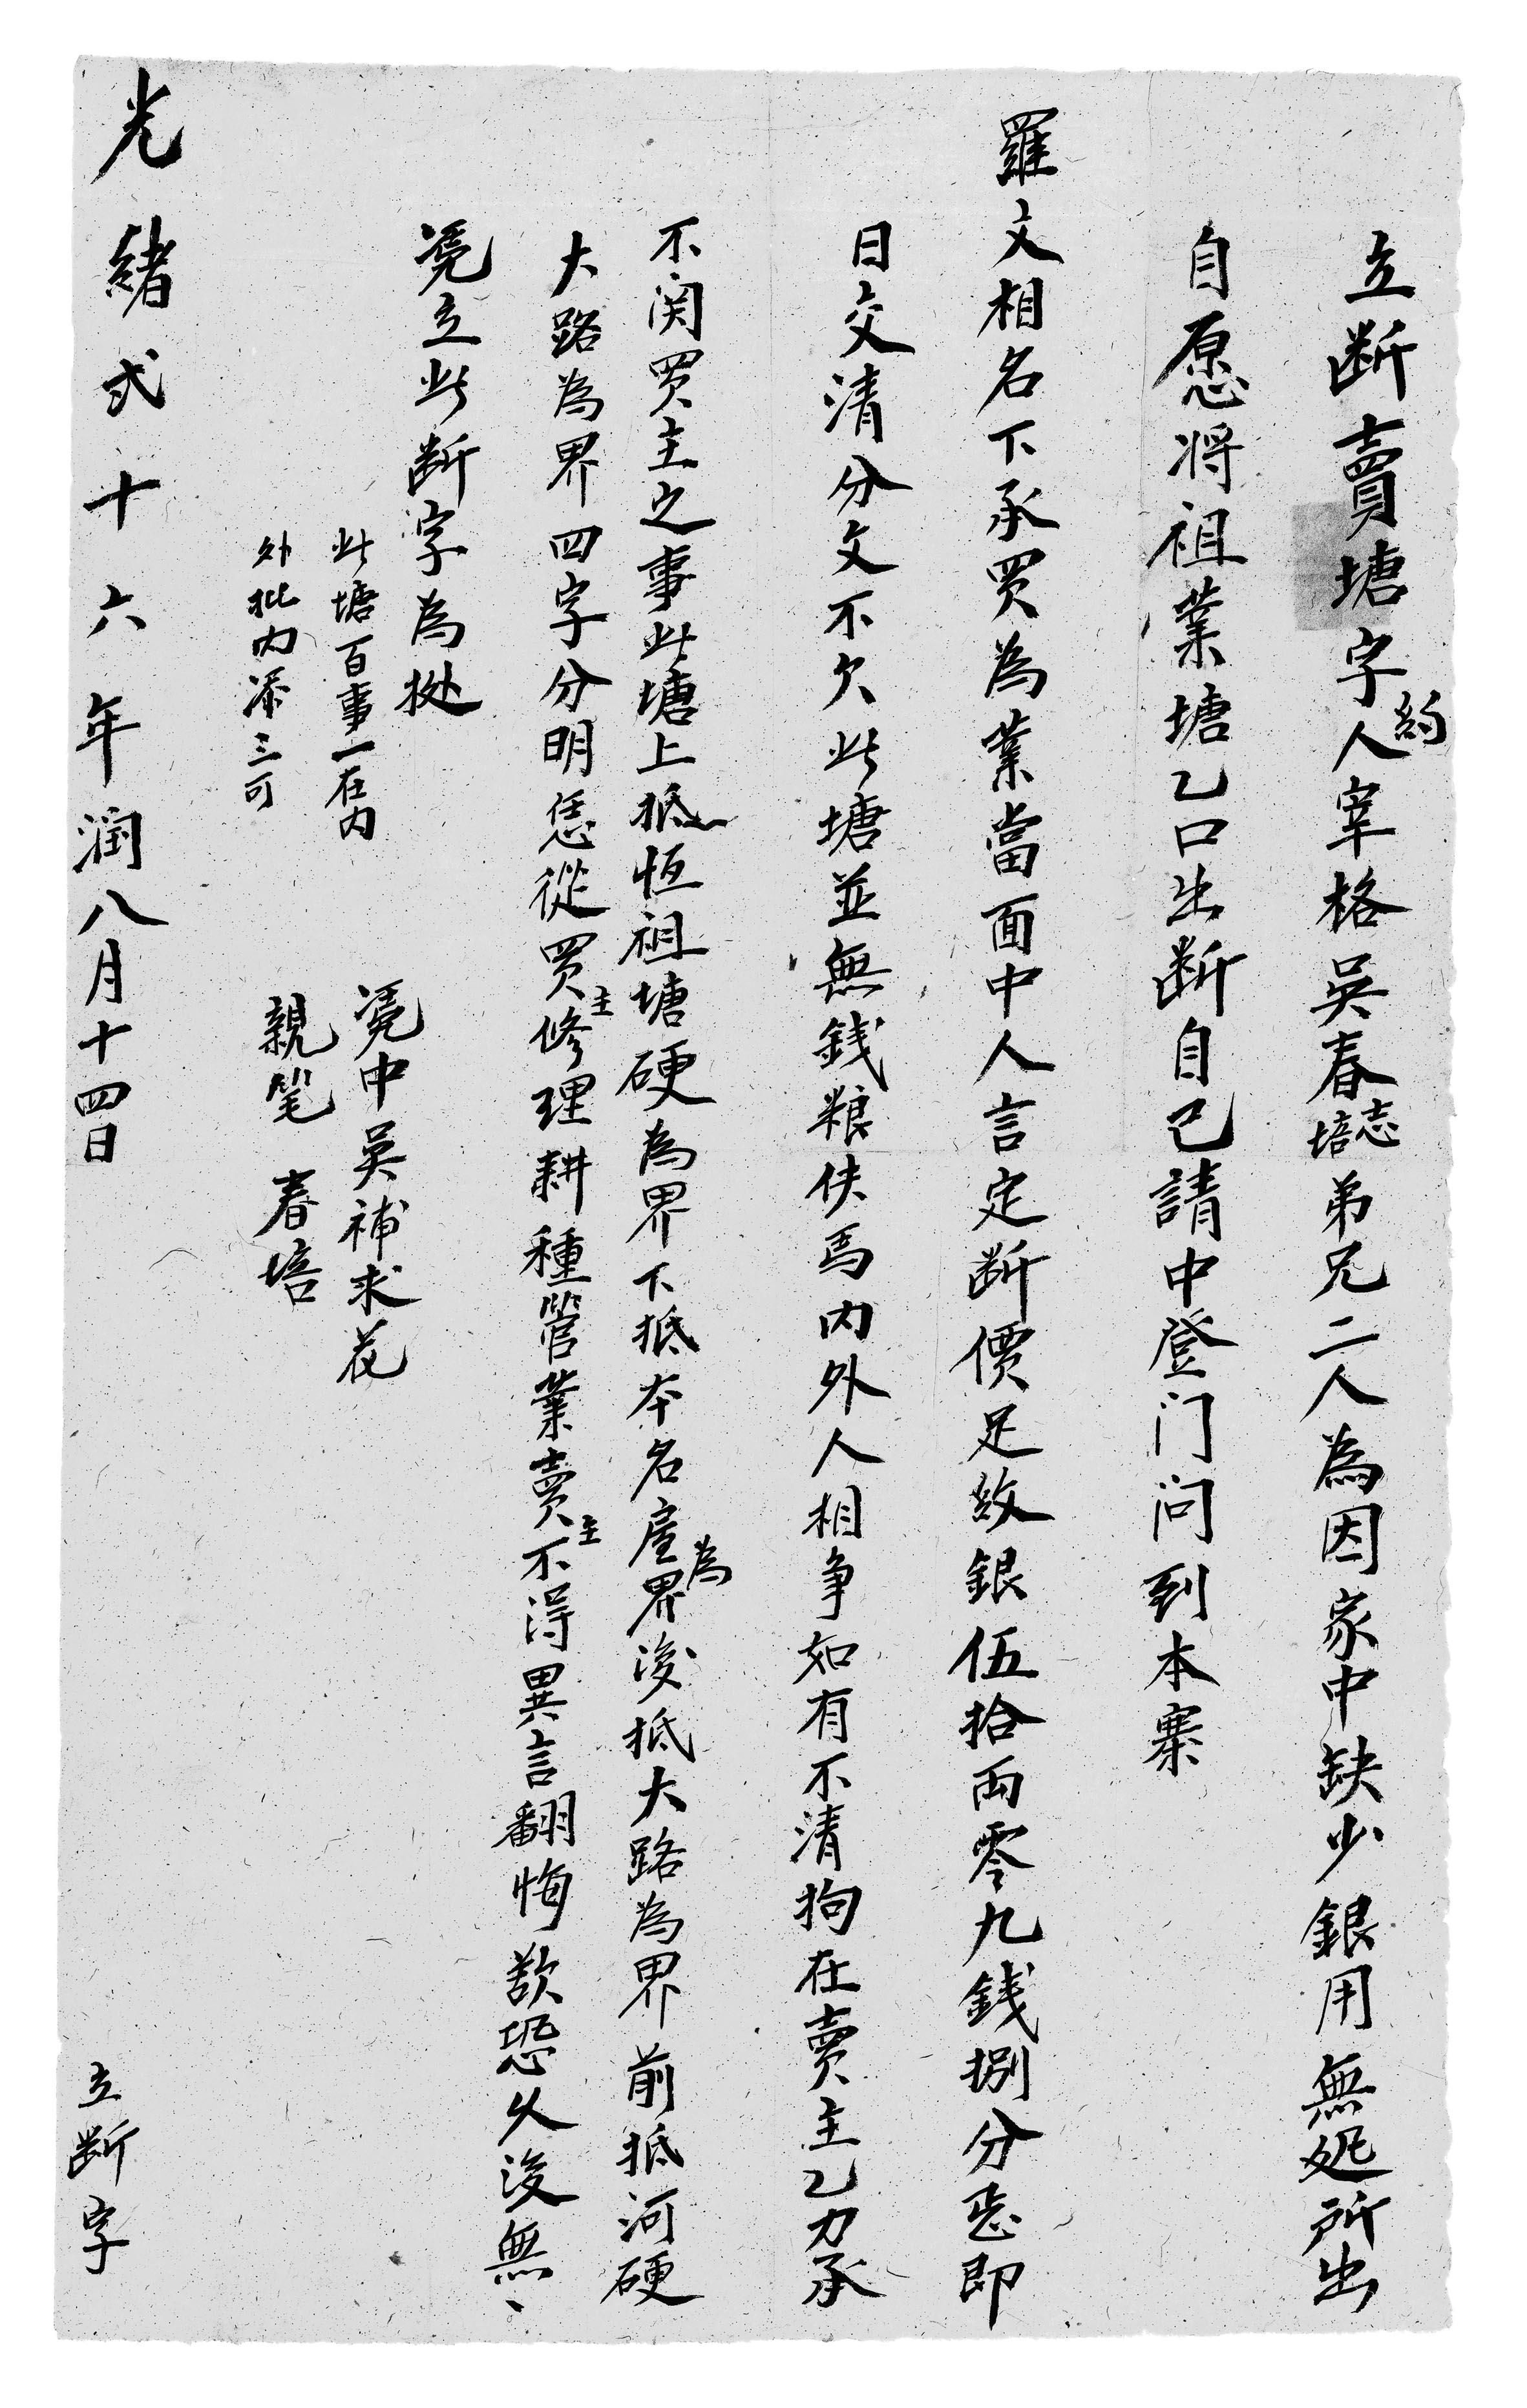 立断賣塘字約人宰格吴春志培弟兄二人為因家中缺少銀用無处所出
自愿将祖業塘乙口出断自己請中登门问到本寨
羅文相名下承買為業當面中人言定断價足紋銀伍拾両零九錢捌分恁即
日交清分文不欠此塘並無錢粮伕馬内外人相争如有不清拘在賣主乙力承
不関買主之事此塘上抵恒祖塘硬為界下抵本名屋為界後抵大路為界前抵河硬
大路為界四字分明恁從買主修理耕種管業賣主不得異言翻悔欶恐久後無丶
凴立此断字為挩
此塘百事一在内
外批内添三可
凴中吴補求花
親笔春培
光緒弍十六年潤八月十四日立断字